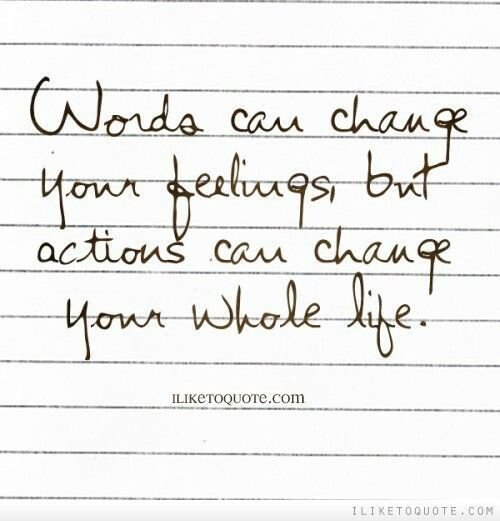 Words can change
your feelings, but
actions can change
your whole life.
ILIKETOQUOTE.com
ILIKETOQUOTE.COM